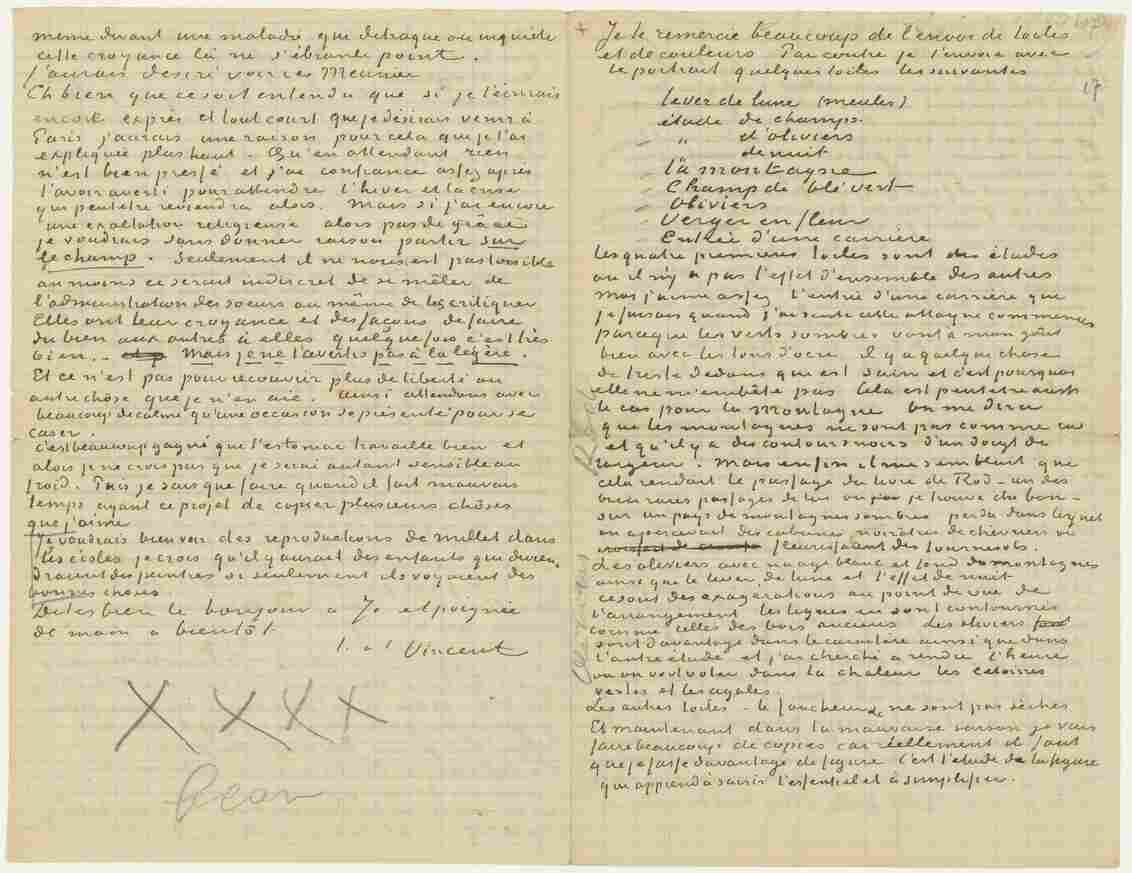 même durant une maladie qui detraque ou inquiète
cette croyance là ne s'ébranle point.
J'aurais desiré voir ces Meunier
Eh bien que ce soit entendu que si je t'écrivais
encore exprès et tout court que je désirais venir à
Paris j'aurais une raison pour cela que je t'ai
expliquée plus haut. Qu'en attendant rien
n'est bien pressé et j'ai confiance assez après
t'avoir averti pour attendre l'hiver et la crise
qui peutetre reviendra alors. Mais si j'ai encore
une exaltation religieuse alors pas de grâce
je voudrais sans donner raison partir sur
le champ. Seulement il ne nous est pas possible
au moins ce serait indiscret de se mêler de
l'administration des soeurs ou même de les critiquer
Elles ont leur croyance et des façons de faire
du bien aux autres à elles quelquefois c'est très
bien. Mais je ne t'avertis pas à la légère.
Et ce n'est pas pour recouvrir plus de liberté ou
autre chose que je n'en aie. Ainsi attendons avec
beaucoup de calme qu'une occasion se présente pour se
caser.
c'est beaucoup gagné que l'estomac travaille bien et
alors je ne crois pas que je serai autant sensible au
froid. Puis je sais que faire quand il fait mauvais
temps ayant ce projet de copier plusieurs chôses
que j'aime
Je voudrais bien voir des reproductions de millet dans
les écoles je crois qu'il y aurait des enfants qui devien
draient des peintres si seulement ils voyaient des
bonnes choses.
Dites bien le bonjour à Jo et poignée
de main à bientôt
t. à t. Vincent
X X X X
+ Je te remercie beaucoup de l'envoi de toiles
et de couleurs Par contre je t'envoie avec
le portrait quelques toiles les suivantes
17
lever de lune (meules)
étude de champs.
" d'oliviers
de nuit
la montagne
Champ de blé vert
Oliviers
Verger en fleur
Entrée d'une carrière
Les quatre premières toiles sont des études
où il n'y a pas l'effet d'ensemble des autres
moi j'aime assez l'entrée d'une carrière que
je faisais quand j'ai senti cette attaque commencer
parceque les verts sombres vont à mon goût
bien avec les tons d'ocre, il y a quelque chose
de triste dedans qui est sain et c'est pourquoi
elle ne m'embête pas Cela est peutetre aussi
le cas pour la Montagne On me dira
que les montagnes ne sont pas comme ça
et qu'il y a des contours noirs d'un doigt de
largeur. Mais enfin il me semblait que
cela rendait le passage du livre de Rod - un des
bien rares passages de lui où je trouve du bon -
sur un pays de montagnes sombres perdu dans lequel
on apercevait des cabanes noirâtres de chevriers où
fleurissaient des tournesols.
Les oliviers avec nuage blanc et fond de montagnes
ainsi que le lever de lune et l'effet de nuit
ce sont des exagérations au point de vue de
l'arrangement les lignes en sont contournées
comme celles des bois anciens Les oliviers
sont davantage dans le caractère ainsi que dans
l'autre étude et j'ai cherché à rendre l'heure
où on voit voler dans la chaleur les cétoines
vertes et les cigales.
Les autres toiles - le faucheur &c ne sont pas sèches
Et maintenant dans la mauvaise saison je vais
faire beaucoup de copies car réellement il faut
que je fasse davantage de figure C'est l'étude de la figure
qui apprend à saisir l'essentiel et à simplifier.